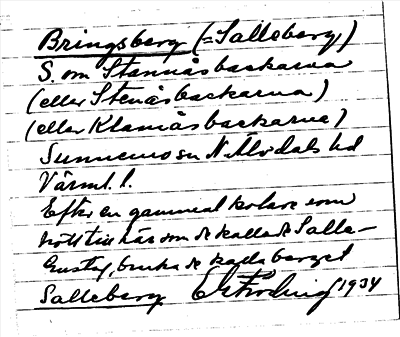 Bringsberg (= Salleberg)
S. om Stannåsbackarna
(eller Stenåsbackarna)
(eller Klanåsbackarna)
Sunnemo sn N. Älvdals hd
Värml. l.
Efter en gammal kolare som
höll till här som de kallade Salle-
Gustaf, bruka de kalla berget
Salleberg 1934